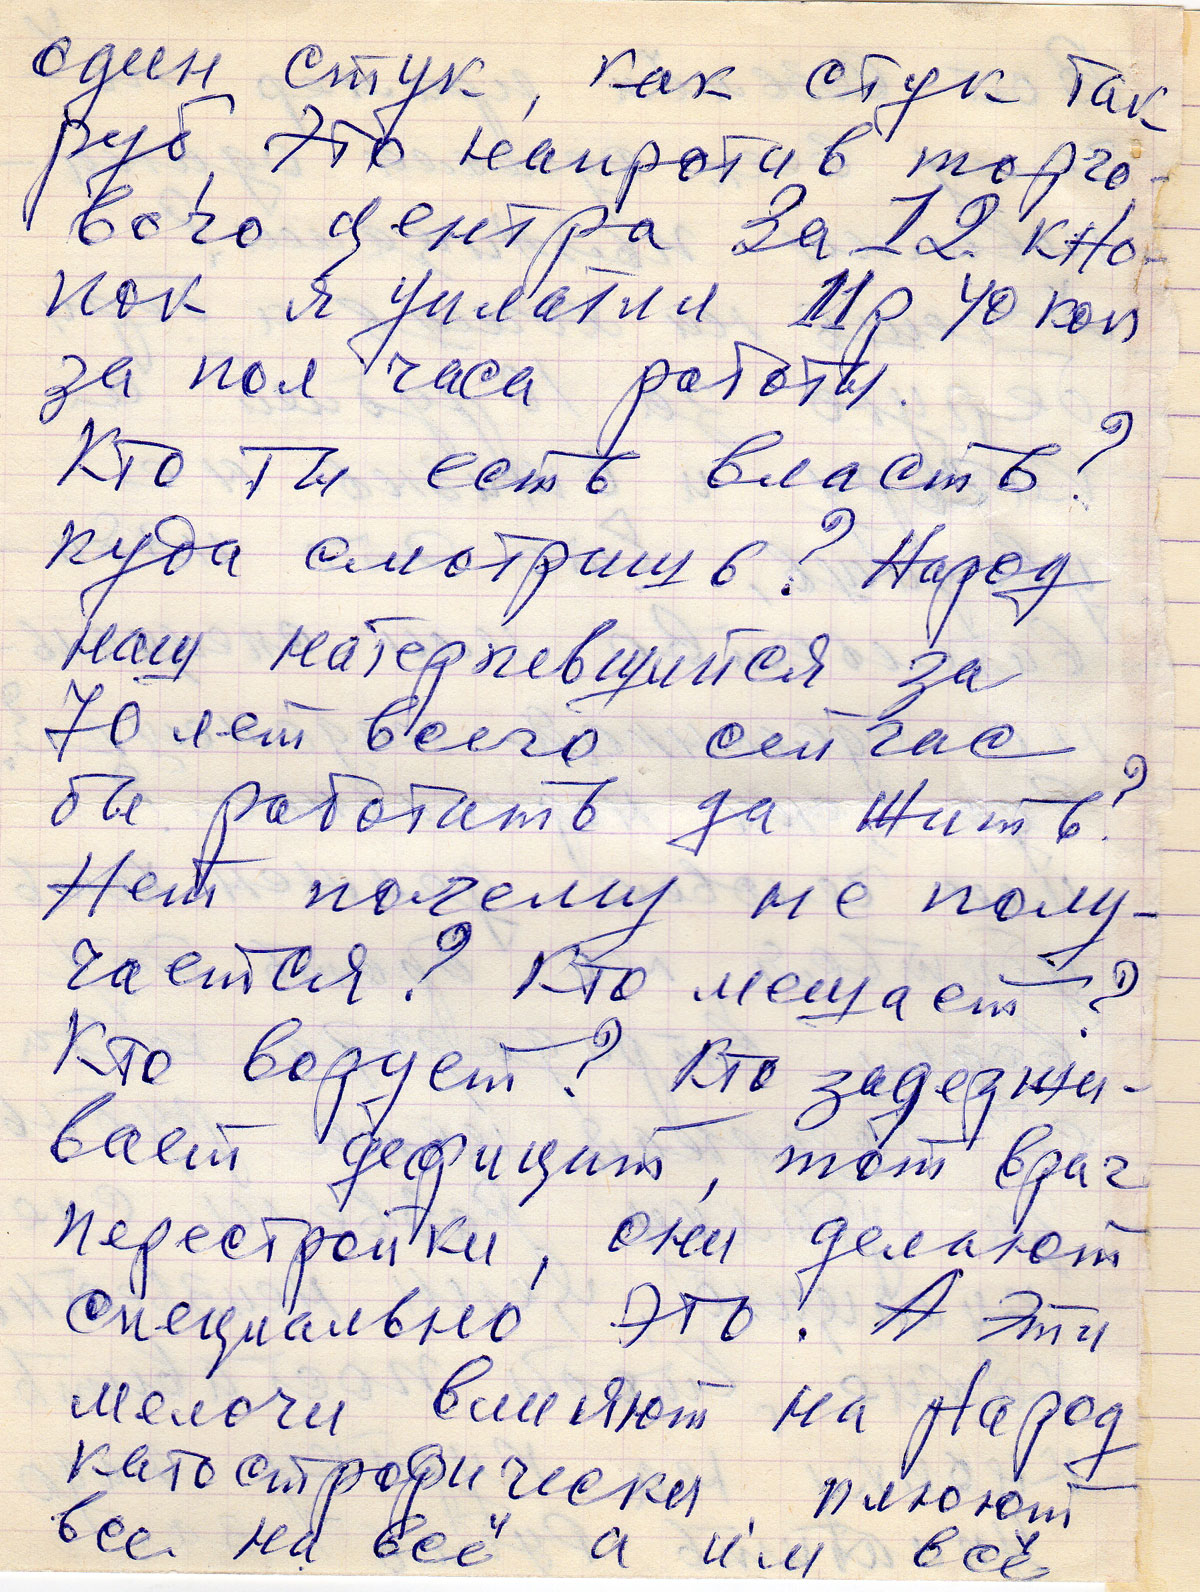 один стук, как стук так
руб, Это напротив торго-
вого центра За 12 кно-
пок я уплатил 11р 40 коп
за пол часа работы.
Кто ты есть власть?
куда смотришь? Народ
наш натерпевшийся за
70 лет всего сейчас
бы работать да жить?
Нет почему не полу-
чается? Кто мешает?
Кто ворует? Кто задержи-
вает дефицит, тот враг
перестройки, они делают
специально это! А эти
мелочи влияют на Народ
катострофически, плюют
все на всё а им всё